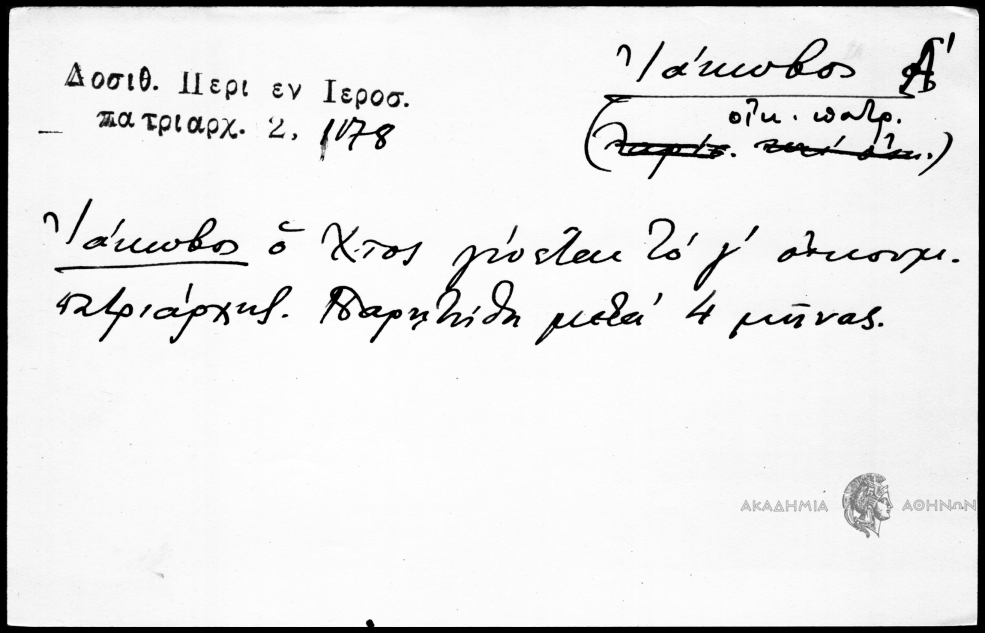 Δοσιθ. Περι εν Ιεροσ.
πατριαρχ. 2, 1178
Ἰάκωβος Α'
οἰκ. πατρ.
Ἰάκωβος ὁ Χ·τος γίνεται τό γ' οἰκουμ.
πατριάρχης. Παρῃτήθη μετά 4 μῆνας.
ΑΚΑΔΗΜΙΑ ΑΘΗΝΩΝ